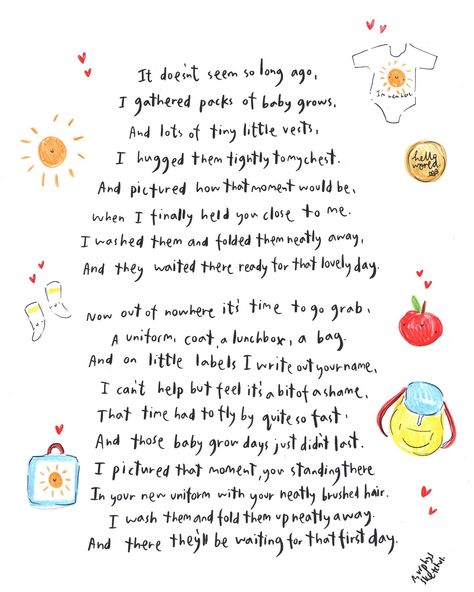 It doesn't seem so long ago,
I gathered packs of baby grows,
And lots of tiny little vests,
I hugged them tightly to my chest.
And pictured how that moment would be,
When I finally held you close to me.
I washed them and folded them neatly away,
And they waited there ready for that lovely day.
Now out of nowhere it's time to go grab,
A uniform, coat, a lunchbox, a bag.
And on little labels I write out your name,
I can't help but feel it's a bit of a shame,
That time had to fly by quite so fast.
And those baby grow days just didn't last.
I pictured that moment, you standing there
In your new uniform with your neatly brushed hair.
I wash them and fold them up neatly away.
And there they'll be waiting for that first day.
I'm new here
hello
world.
Murphys
sketches.